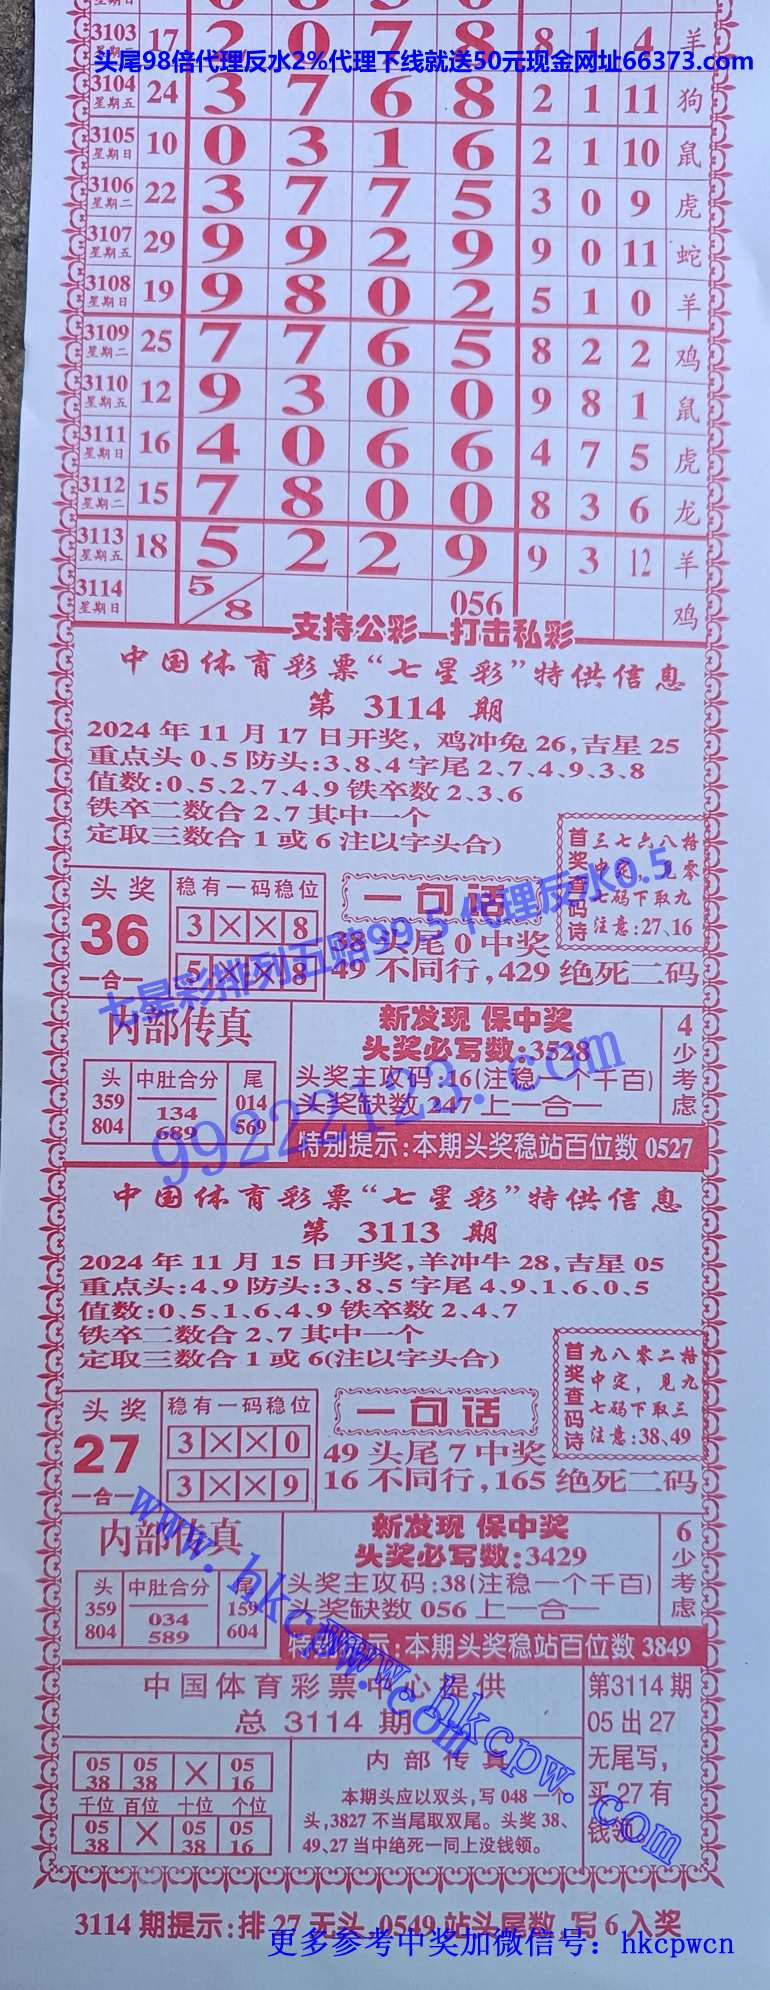 3103 17 2 0 7 8 8 1 4 羊
头尾98倍代理反水2%代理下线就送50元现金网址66373.com
3104 星期五 24 3 7 6 8 2 1 11 狗
3105 星期日 10 0 3 1 6 2 1 10 鼠
3106 星期二 22 3 7 7 5 3 0 9 虎
3107 星期五 29 9 9 2 9 9 0 11 蛇
3108 星期日 19 9 8 0 2 5 1 0 羊
3109 星期二 25 7 7 6 5 8 2 2 鸡
3110 星期五 12 9 3 0 0 9 8 1 鼠
3111 星期日 16 4 0 6 6 4 7 5 虎
3112 星期二 15 7 8 0 0 8 3 6 龙
3113 星期五 18 5 2 2 9 9 3 12 羊
3114 星期日 5/8 056 鸡
支持公彩—打击私彩
中国体育彩票“七星彩”特供信息
第 3114 期
2024 年 11 月 17 日开奖, 鸡冲兔 26,吉星 25
重点头 0、5 防头:3、8、4 字尾 2、7、4、9、3、8
值数:0、5、2、7、4、9 铁卒数 2、3、6
铁卒二数合 2、7 其中一个
定取三数合 1 或 6 注以字头合)
首奖查码诗
三七六八格
中定，见零
七码下取九
注意:27、16
头奖
36
一合一
稳有一码稳位
3 × × 8
5 × × 8
一句话
38 头尾 0 中奖
49 不同行,429 绝死二码
七星彩排列五赔99.5 代理反水0.5
内部传真
头 中肚合分 尾
359 134 014
804 689 569
新发现 保中奖
头奖必写数:3528
头奖主攻码:16(注稳一个千百)
头奖缺数 247 上一合一
4少考虑
特别提示:本期头奖稳站百位数 0527
99222123.com
中国体育彩票“七星彩”特供信息
第 3113 期
2024 年 11 月 15 日开奖,羊冲牛 28,吉星 05
重点头:4、9 防头:3、8、5 字尾 4、9、1、6、0、5
值数:0、5、1、6、4、9 铁卒数 2、4、7
铁卒二数合 2、7 其中一个
定取三数合 1 或 6(注以字头合)
首奖查码诗
九八零二格
中定，见九
七码下取三
注意:38、49
头奖
27
一合一
稳有一码稳位
3 × × 0
3 × × 9
一句话
49 头尾 7 中奖
16 不同行,165 绝死二码
内部传真
头 中肚合分 尾
359 034 159
804 589 604
新发现 保中奖
头奖必写数:3429
头奖主攻码:38(注稳一个千百)
头奖缺数 056 上一合一
6少考虑
特别提示:本期头奖稳站百位数 3849
www.hkcpw.com
www.hkcpw.com
中国体育彩票中心提供
总 3114 期
05 05 × 05
38 38 16
千位 百位 十位 个位
05 × 05 05
38 38 16
内部传真
本期头应以双头,写 048 一个
头,3827 不当尾取双尾。头奖 38、
49、27 当中绝死一同上没钱领。
第3114 期
05 出 27
无尾写,
买 27 有
钱领。
3114 期提示:排 27 无头,0549 站头尾数,写 6 入奖
更多参考中奖加微信号：hkcpwcn